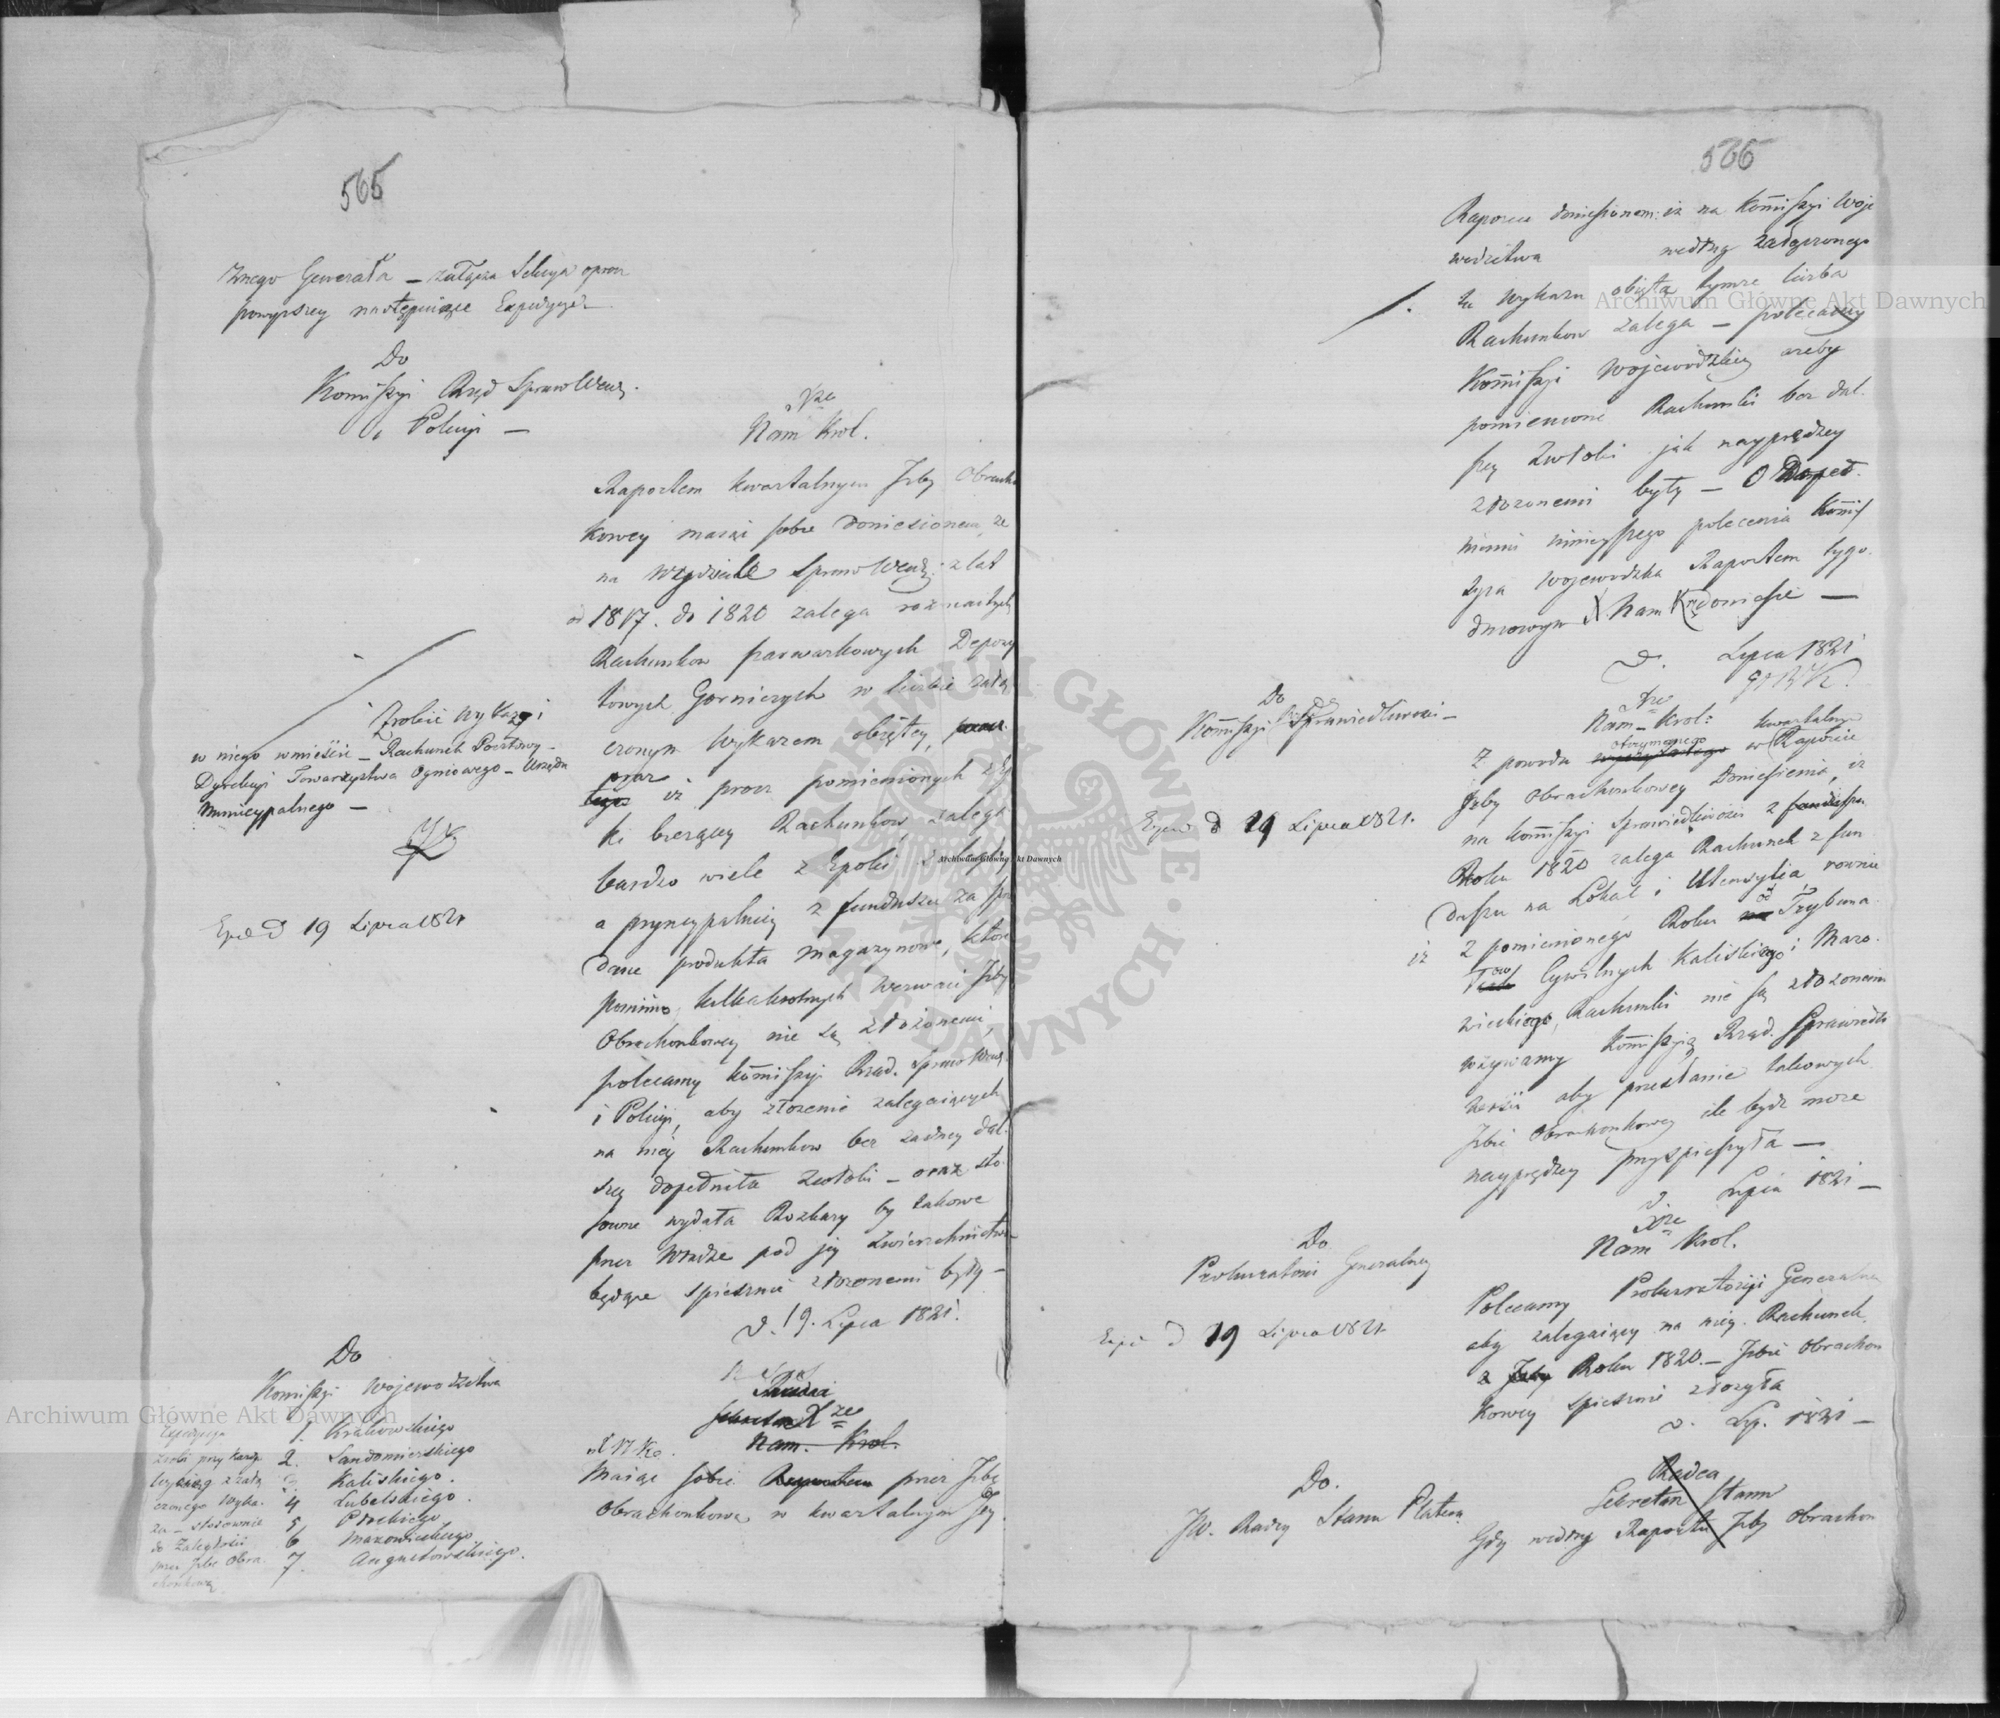 565
Jnego Generała – załącza Sekcya oprocz
powyższey następujące Expedycye
Do
Komissyi Rząd Spraw Wewn.
i Policyi –
Xze
Nam Krol.
Raportem kwartalnym Izby Obrachun
kowey maiąc sobie doniesionem, że
na Wydziale Spraw Wewn: z lat
od 1817. do 1820 zalega rożnorodnych
Rachunkow Depozy
towych Gorniczych w liczbie załą
czonym Wykazem obiętey,
oraz iż procz pomienionych z Epo
ki bieżącey Rachunkow, zalega
bardzo wiele z Epoki
a pryncypalniey z funduszu za sprze
dane produkta magazynowe, ktore
pomimo kilkakrotnych wezwań Izby
Obrachonkowey nie są złożonemi,
polecamy Komissyi Rząd. Spraw Wewn.
i Policyi, aby złożenie zalegaiących
na niey Rachunkow bez żadney dal
szey dopełniła zwłoki – oraz sto
sowne wydała Rozkazy by takowe
przez Władze pod jey zwierzchnictwem
będące spiesznie złożonemi były –
d. 19. Lipca 1821.
Zrobić Wykaz i
w niego wmieścić – Rachunek Pocztowy –
Dyrekcyi Towarzystwa Ogniowego – Urzędu
Municypalnego –
Exped d 19 Lipca 1821
Do
Komissyi Wojewodztwa
1. Krakowskiego
2. Sandomierskiego
3. Kaliskiego.
4 Lubelskiego.
5 Płockiego
6 Mazowieckiego
7. Augustowskiego.
Expedycya
zrobi przy każdy
wyciąg z załą
czonego Wyka.
zu – stosownie
do Zaległości
przez Izbę Obra.
chonkową
Xze
Nam. Krol.
Maiąc sobie Raportem przez Izbę
Obrachonkową w kwartalnym Jey
566
Raporcie doniesionem: iż na Komissyi Woje
wodztwa według załączonego
tu Wykazu obięta tymże liczba
Rachunkow zalega – polecamy
Komissyi Wojewodzkiey ażeby
pomienione Rachunki bez dal.
szey zwłoki jak nayprędzey
złożonemi były – O Dopeł.
nieniu ninieyszego polecenia Komis
sya Wojewodzka Raportem tygo.
dniowym X. Nam Kr. doniesie –
d. Lipca 1821
Do
Komissyi Sprawiedliwości –
Exped d 19 Lipca 1821.
Xze
Nam – Krol:
Z powodu otrzymanego w kwartalnym Raporcie
Izby Obrachonkowey Doniesienia, iż
na Komissyi Sprawiedliwości z
Roku 1820 zalega Rachunek z fun
duszu na Lokal i Utensylia rownie
iż z pomienionego Roku od Trybuna
łow Cywilnych Kaliskiego i Mazo.
wieckiego, Rachunki nie są złożonemi
wzywamy Komissyią Rząd. Sprawiedli
wości aby przesłanie takowych
Izbie Obrachonkowey ile bydź może
nayprędzey przyspieszyła –
d. Lipca 1821 –
Do
Prokuratorii Generalney
Exped d 19 Lipca 1821
Xze
Nam Krol.
Polecamy Prokuratoryi Generalney
aby zalegaiący na niey Rachunek
z Roku 1820. – Izbie Obrachon
kowey spiesznie złożyła
d. Lip. 1821 –
Do.
JW. Radzcy Stanu Platera
Radca
Sekretarz Stanu
Gdy według Raportu Izby Obrachon
Archiwum Główne Akt Dawnych
Archiwum Główne Akt Dawnych
Archiwum Główne Akt Dawnych
ARCHIWUM GŁÓWNE AKT DAWNYCH